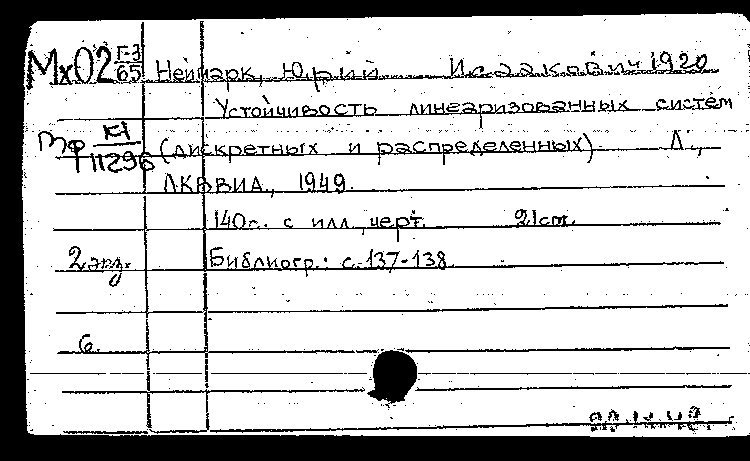 Мх02 Г-3/65 Неймарк, Юрий Исаакович 1920
Устойчивость линеаризованных систем
(дискретных и распределенных). Л.,
ЛКВВИА, 1949.
140с. с илл., черт. 21см.
2 экз. Библиогр.: с. 137-138.
6.